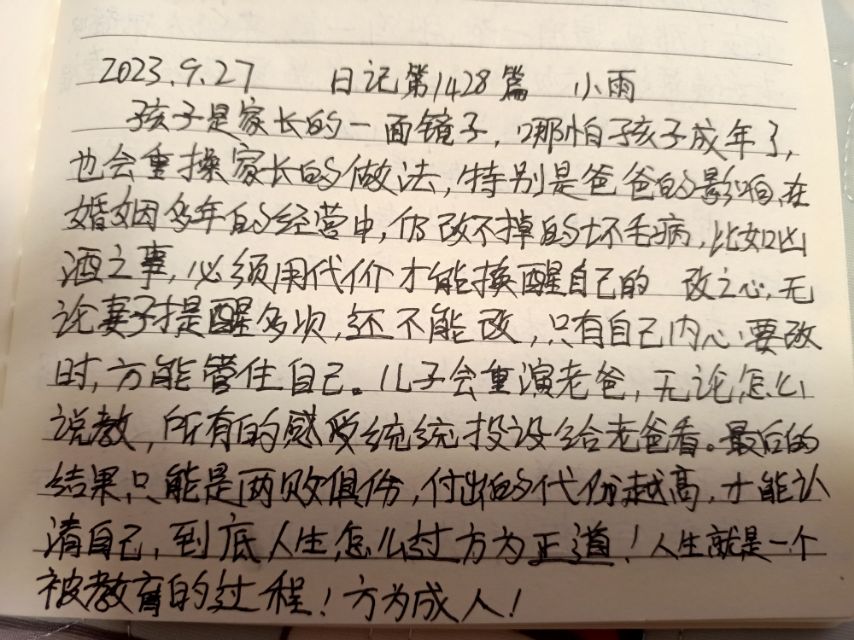 2023.9.27 日记第1428篇 小雨
孩子是家长的一面镜子，哪怕孩子成年了，
也会重操家长的做法，特别是爸爸的影响，在
婚姻多年的经营中，仍改不掉的坏毛病，比如凶
酒之事，必须用代价才能换醒自己的 改之心，无
论妻子提醒多次，还不能改，只有自己内心要改
时，方能管住自己。儿子会重演老爸，无论怎么
说教，所有的感受统统投设给老爸看。最后的
结果，只能是两败俱伤，付出的代价越高，才能认
清自己，到底人生怎么过方为正道！人生就是一个
被教育的过程！方为成人！